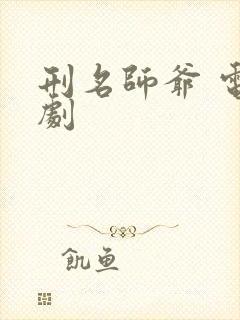 刑名師爺 電
劇
飢魚